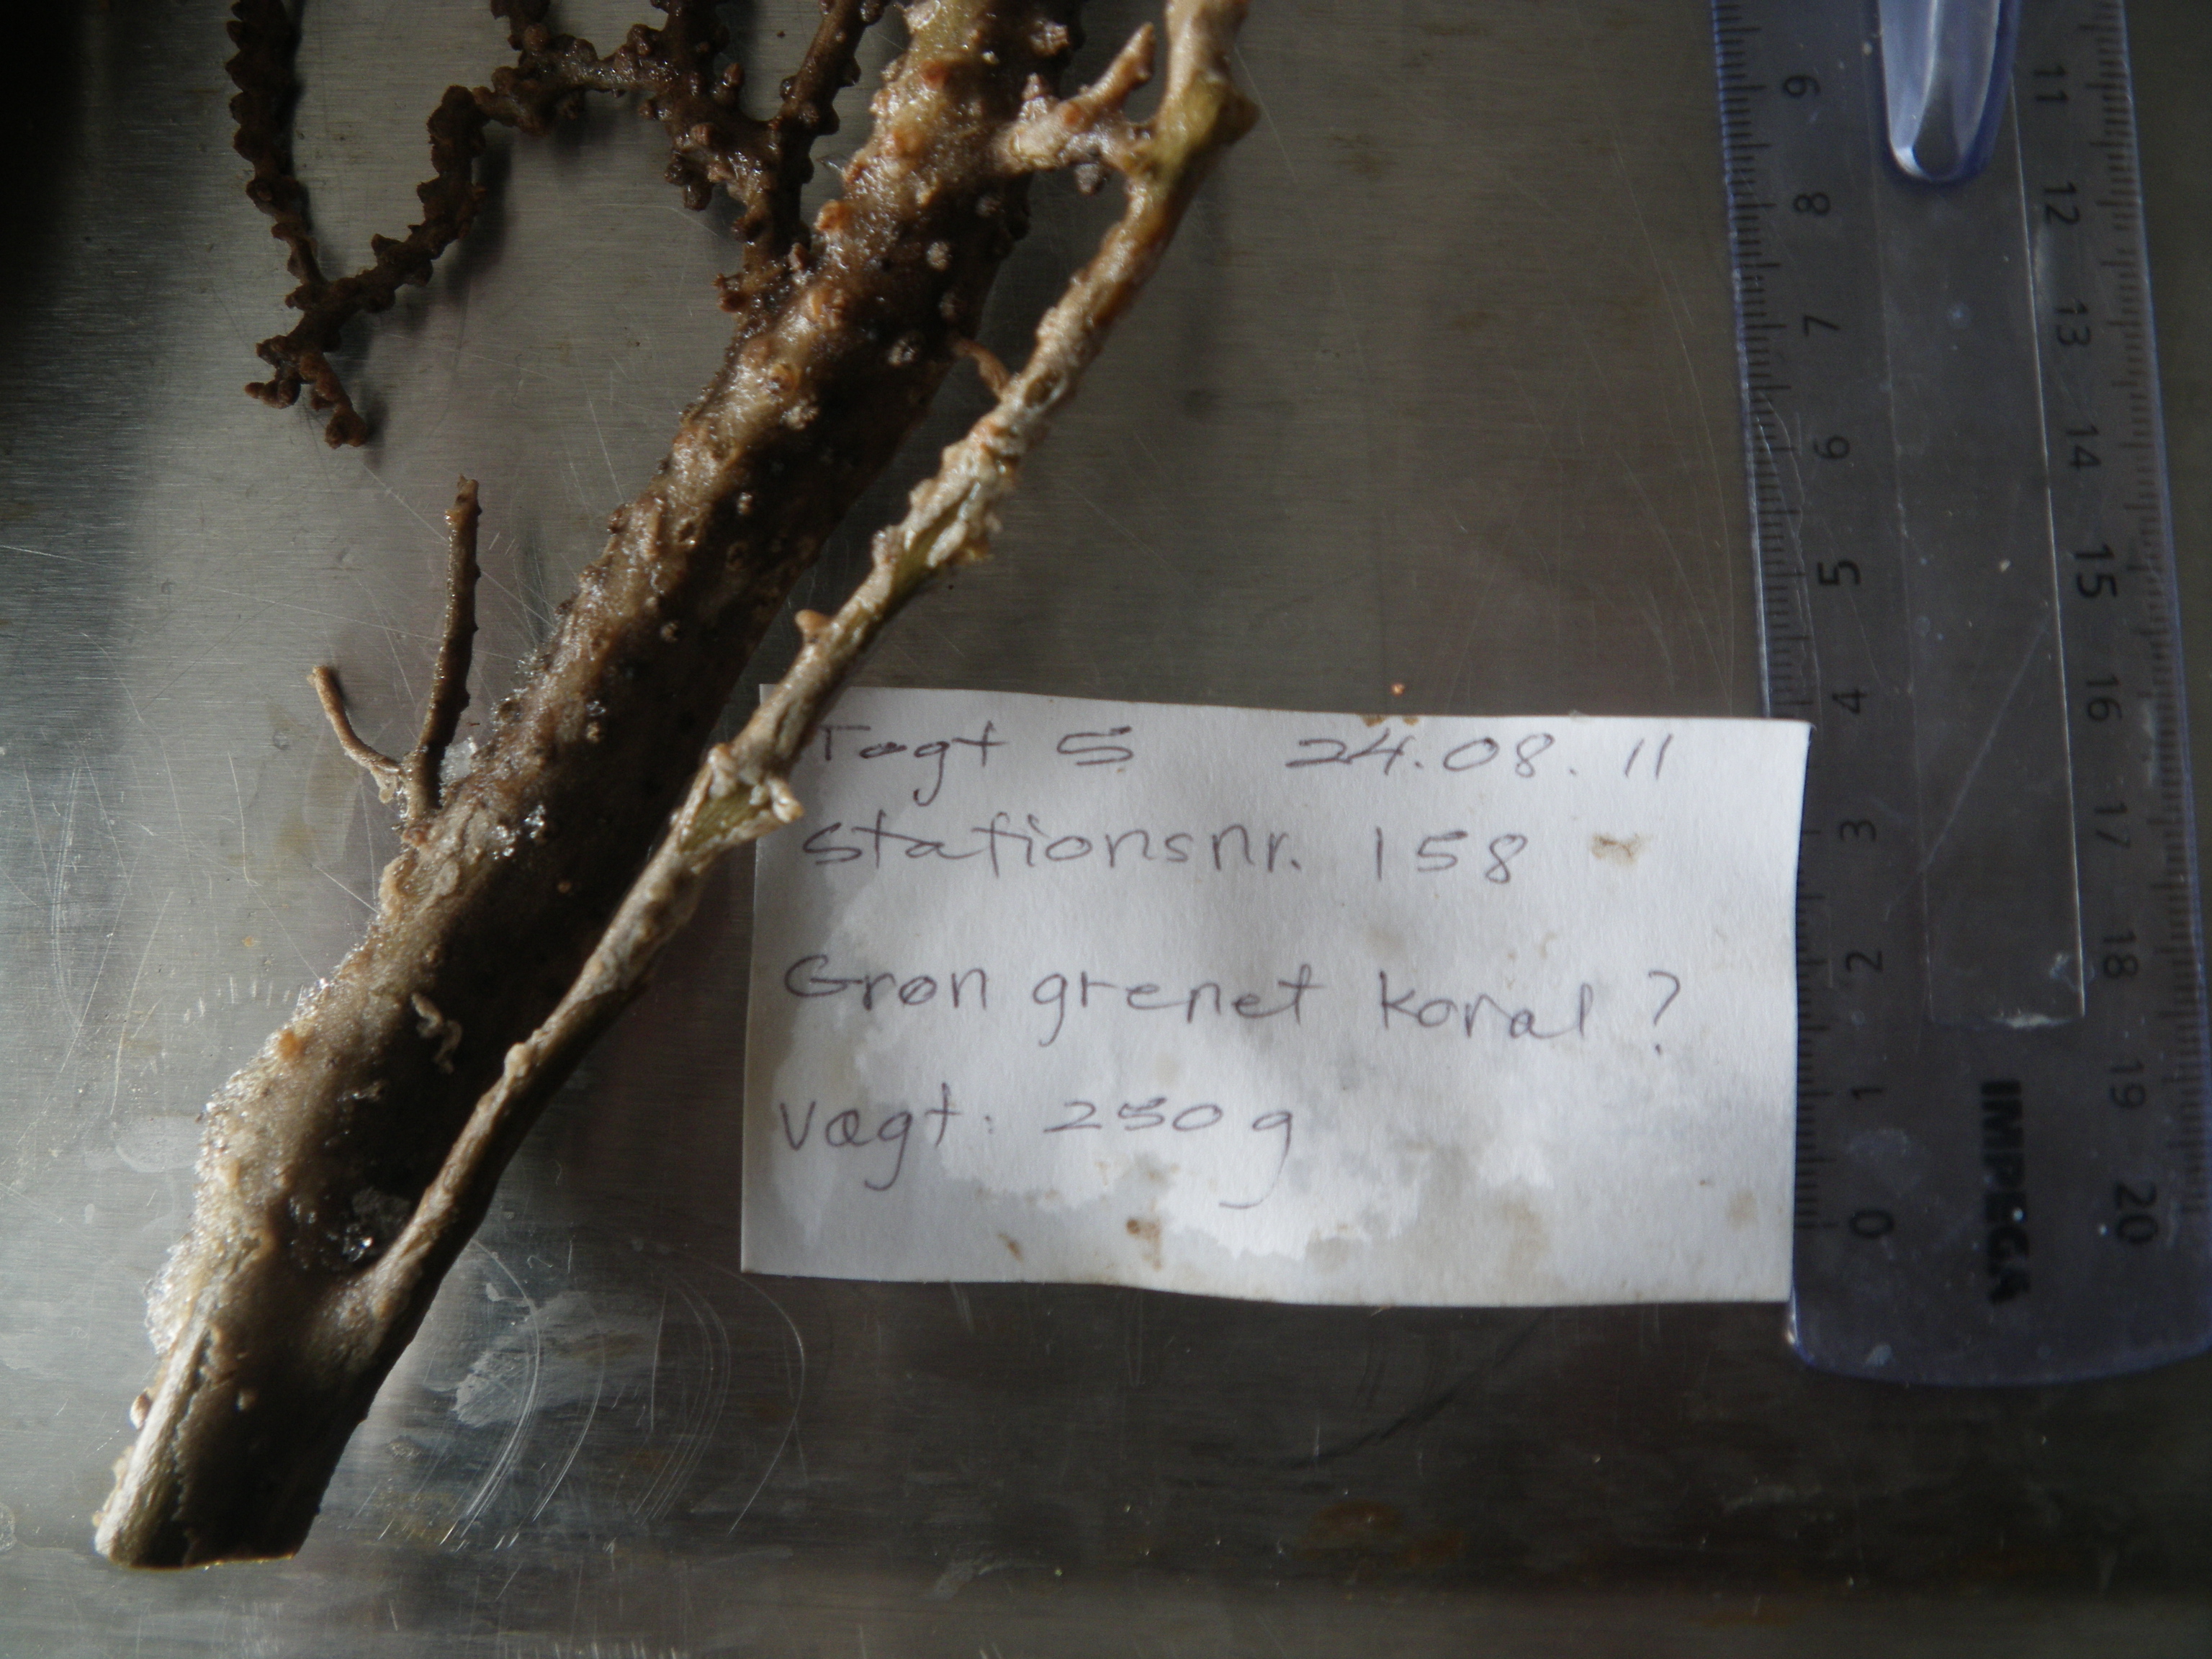 Togt 5 24.08.11
Stationsnr. 158
Grøn grenet koral ?
Vægt: 250g
9
8
7
6
5
4
3
2
1
0
11
12
13
14
15
16
17
18
19
20
IMPEGA